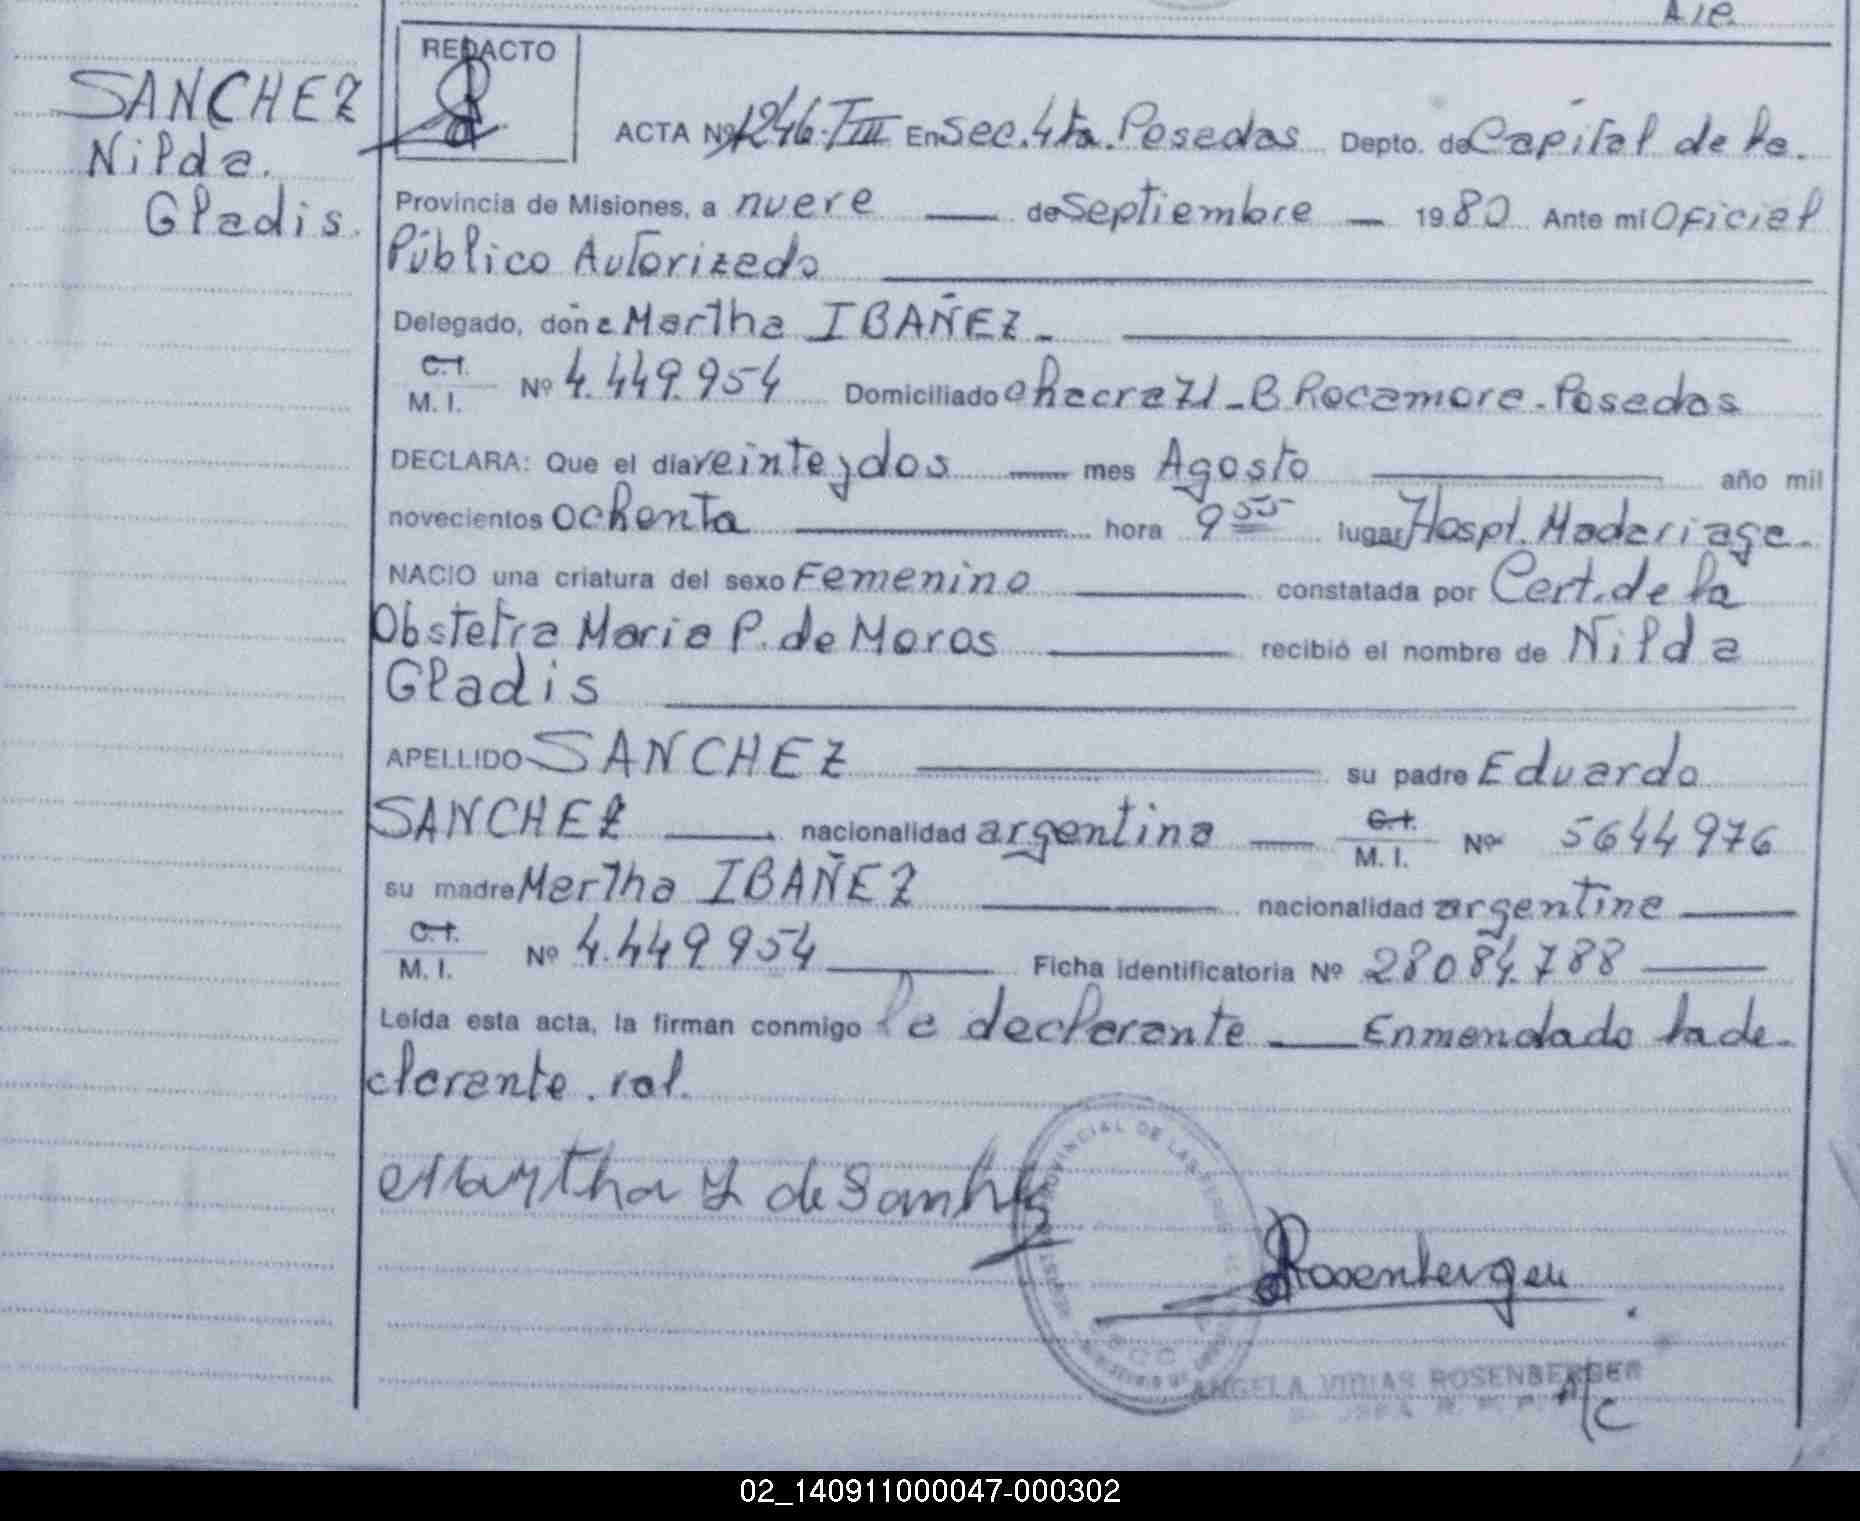 SANCHEZ
Nilda.
Gladis.
REDACTO
ACTA Nº 1246-TIII En Sec. 4ta. Posadas Depto. de Capital de la.
Provincia de Misiones, a nueve de Septiembre 1980 Ante mi Oficial
Público Autorizado
Delegado, don a Martha IBAÑEZ.
C.I.
M. I. Nº 4.449.954 Domiciliado chacra 71 - B Rocamora - Posadas
DECLARA: Que el día veinte y dos mes Agosto año mil
novecientos ochenta hora 9 55 lugar Hospt. Madariaga.
NACIO una criatura del sexo Femenino constatada por Cert. de la
Obstetra Maria P. de Moros recibió el nombre de Nilda
Gladis
APELLIDO SANCHEZ su padre Eduardo
SANCHEZ nacionalidad argentina C.I. M. I. Nº 5644976
su madre Martha IBAÑEZ nacionalidad argentina
C.I.
M. I. Nº 4.449.954 Ficha identificatoria Nº 28084.788
Leída esta acta, la firman conmigo la declarante Enmendado la de-
clarante. val.
Martha Y de Sanchez
Rosenberger
ANGELA ROSENBERGER
A/C
02_140911000047-000302